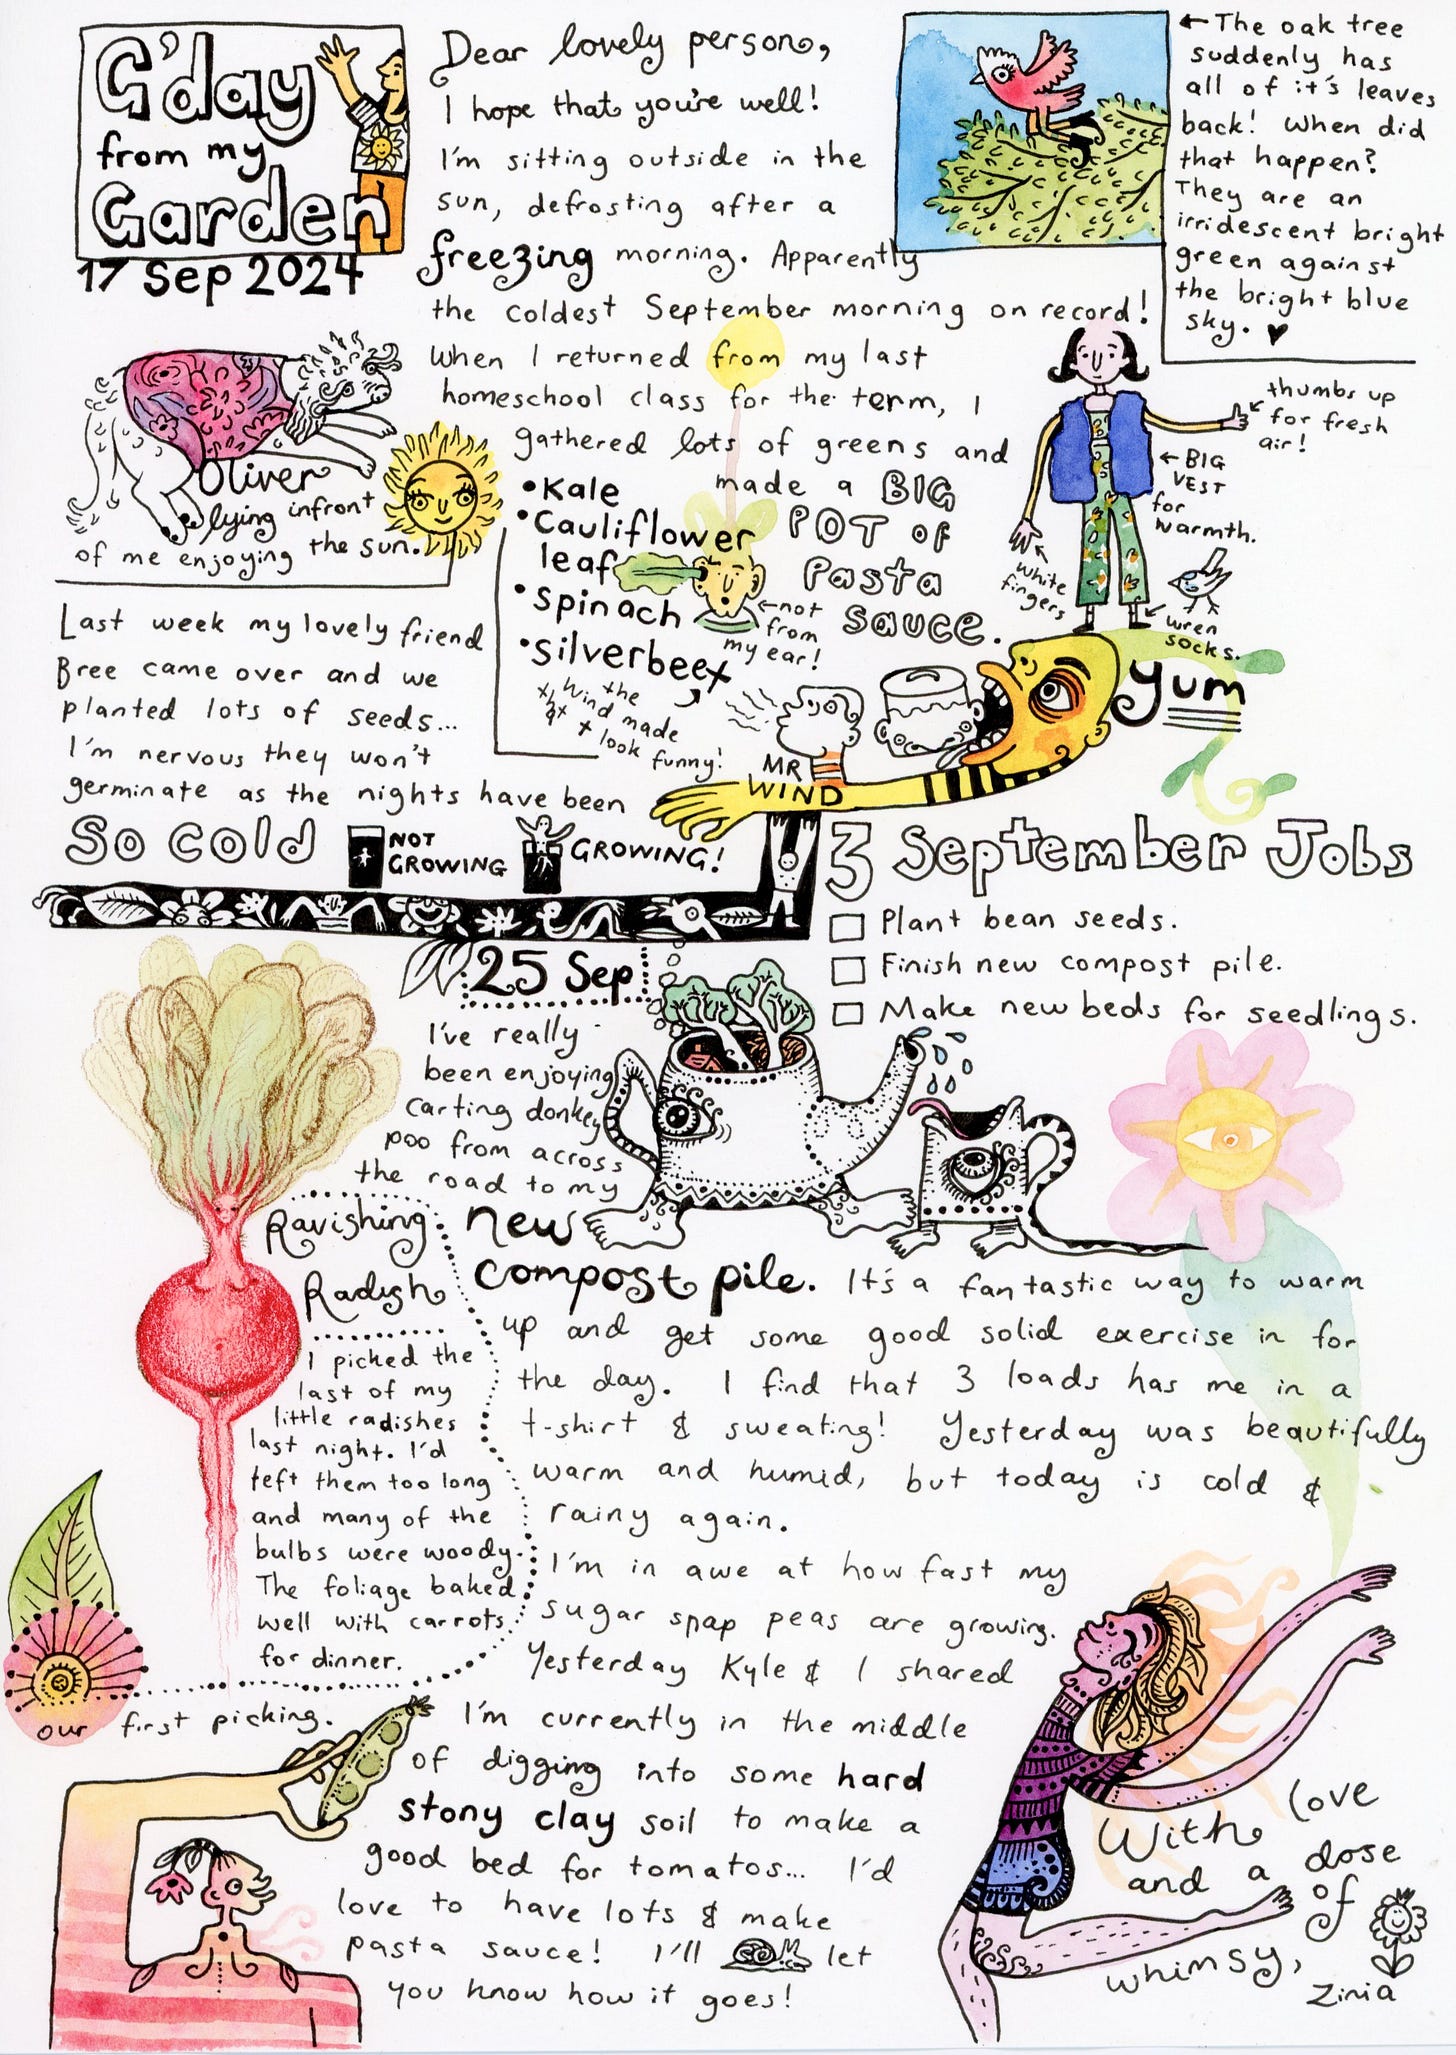 G'day
from my
Garden
17 Sep 2024
Dear lovely person,
I hope that you're well!
I'm sitting outside in the
sun, defrosting after a
freezing morning. Apparently
the coldest September morning on record!
When I returned from my last
homeschool class for the term, I
gathered lots of greens and
made a BIG
POT OF
Pasta
Sauce.
• Kale
• Cauliflower
leaf
• Spinach
• Silverbeet
← not
from
my ear!
the
wind made
t look funny!
MR
WIND
Yum
← The oak tree
suddenly has
all of it's leaves
back! When did
that happen?
They are an
irridescent bright
green against
the bright blue
sky. ♥
thumbs up
for fresh
air!
← BIG
VEST
for
warmth.
white
fingers
wren
socks.
Oliver
lying infront
of me enjoying the sun.
Last week my lovely friend
Bree came over and we
planted lots of seeds...
I'm nervous they won't
germinate as the nights have been
So Cold
NOT
GROWING
GROWING!
3 September Jobs
☐ Plant bean seeds.
☐ Finish new compost pile.
☐ Make new beds for seedlings.
25 Sep
I've really
been enjoying
carting donkey
poo from across
the road to my
new
compost pile. It's a fantastic way to warm
up and get some good solid exercise in for
the day. I find that 3 loads has me in a
t-shirt & sweating! Yesterday was beautifully
warm and humid, but today is cold &
rainy again.
Ravishing
Radish
I picked the
last of my
little radishes
last night. I'd
left them too long
and many of the
bulbs were woody.
The foliage baked
well with carrots
for dinner.
I'm in awe at how fast my
sugar snap peas are growing.
Yesterday Kyle & I shared
our first picking.
I'm currently in the middle
of digging into some hard
stony clay soil to make a
good bed for tomatos... I'd
love to have lots & make
pasta sauce! I'll let
you know how it goes!
With love
and a dose
of
whimsy,
Zinia